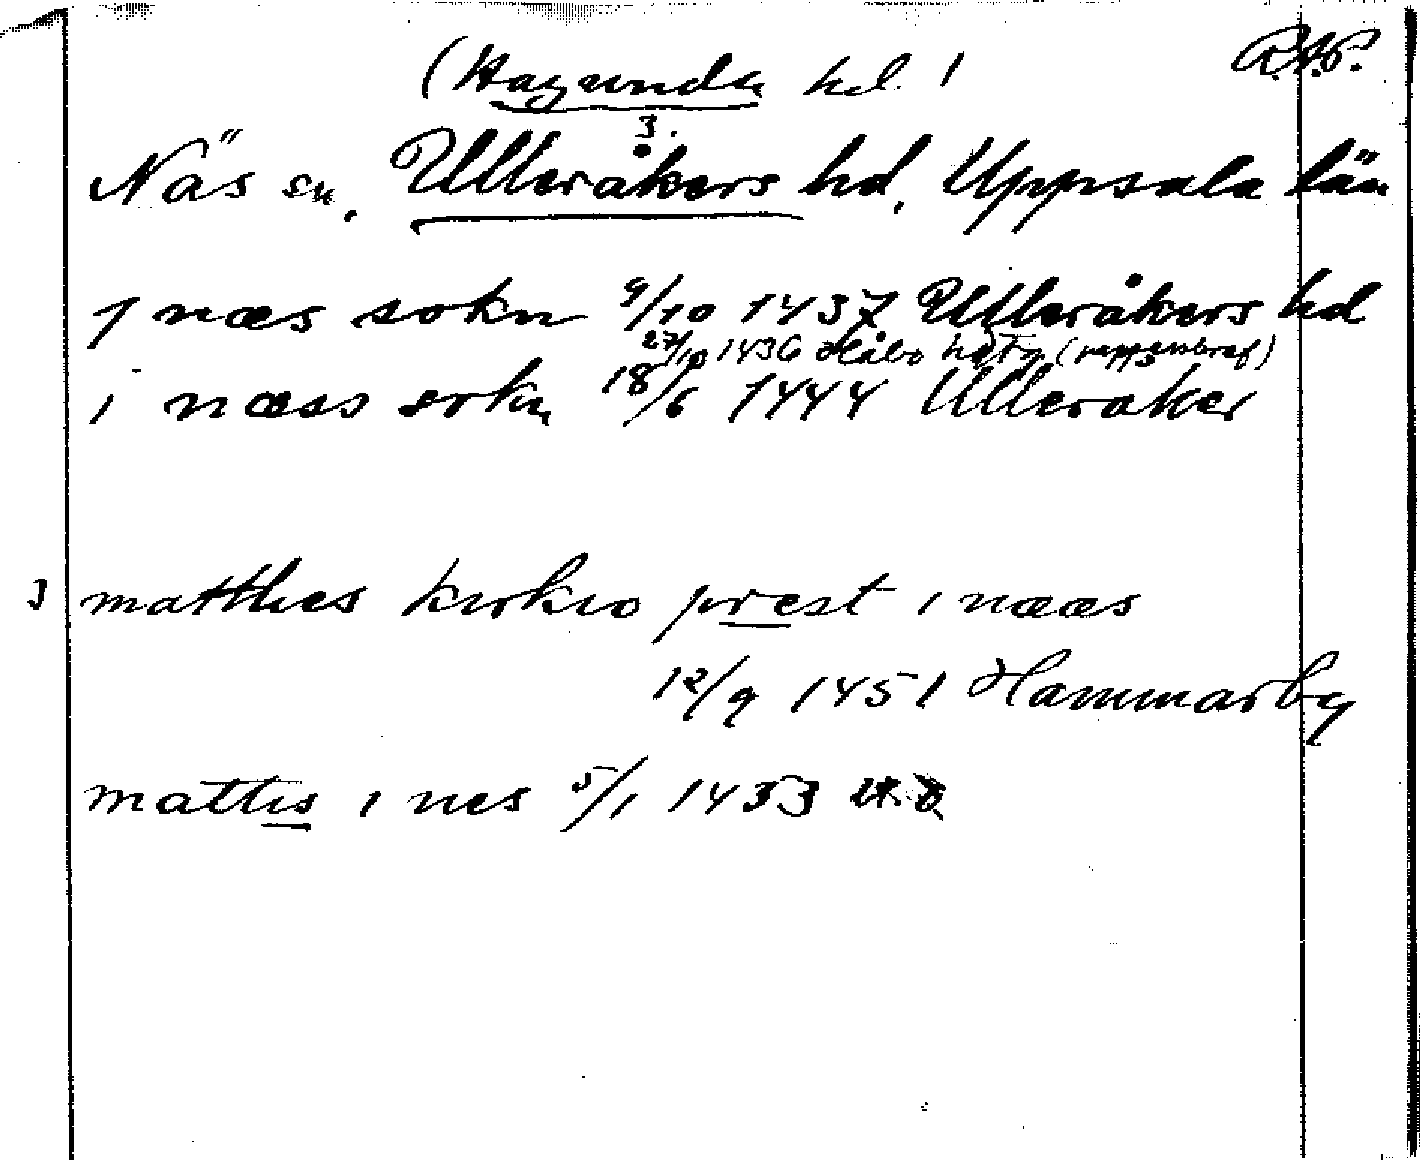 (Hagunda hd.)
R.A.P.
3.
Näs sn, Ulleråkers hd, Uppsala län
J næs sokn 9/10 1437 Ulleråkers hd
27/10 1436 Håbo hd
i næss sokn 18/6 1444 Ulleraker
J matthes kirkio prest i nææs
12/9 1451 Hammarby
mattis i nes 5/1 1453